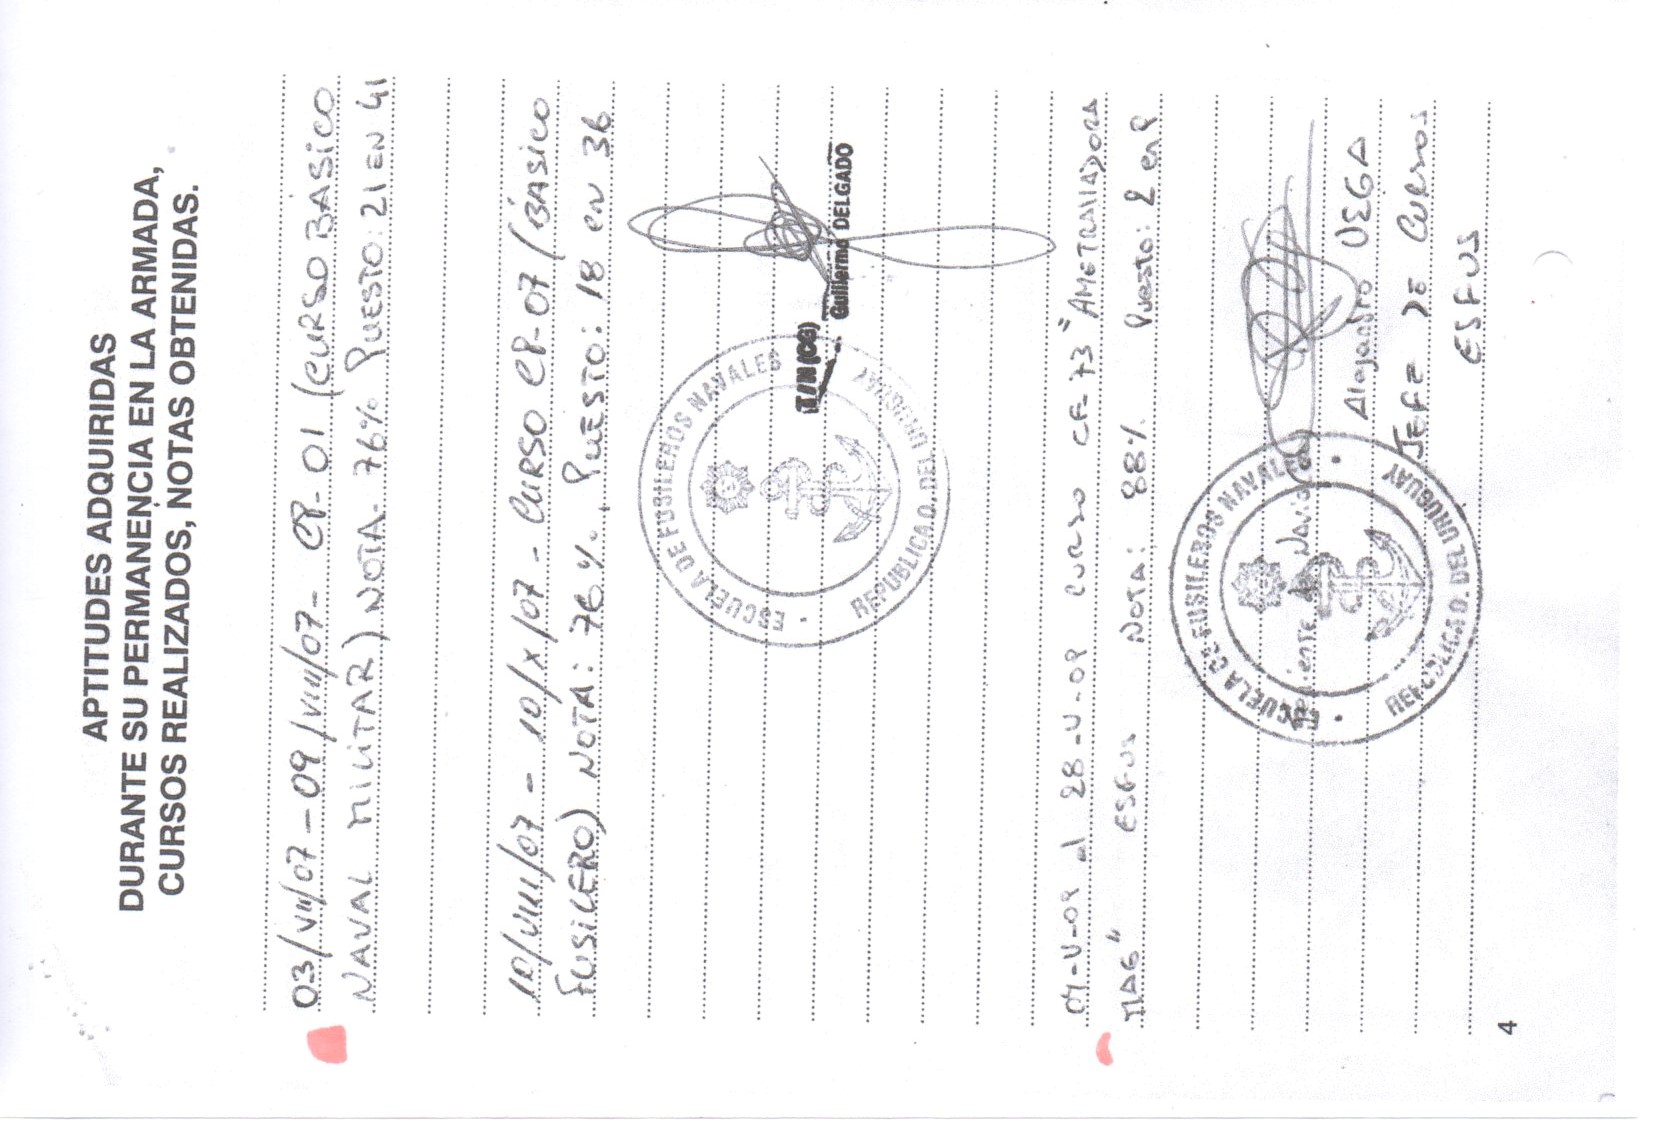 APTITUDES ADQUIRIDAS
DURANTE SU PERMANENCIA EN LA ARMADA,
CURSOS REALIZADOS, NOTAS OBTENIDAS.
03/VII/07 - 09/VIII/07 - CP-01 (CURSO BÁSICO
NAVAL MILITAR) NOTA - 76% PUESTO: 21 EN 41
10/VIII/07 - 10/X/07 - CURSO CP-07 (BÁSICO
FUSILERO) NOTA: 76%, PUESTO: 18 en 36
- ESCUELA DE FUSILEROS NAVALES
REPUBLICA O. DEL URUGUAY
T/N (CG)
Guillermo DELGADO
04-V-09 al 28-V-09 CURSO CF-73 "AMETRALLADORA
MAG" ESFUS NOTA: 88% Puesto: 2 en
· ESCUELA DE FUSILEROS NAVALES ·
REPUBLICA O. DEL URUGUAY
Teniente de Navio
Alejandro VEGA
JEFE DE CURSOS
ESFUS
4